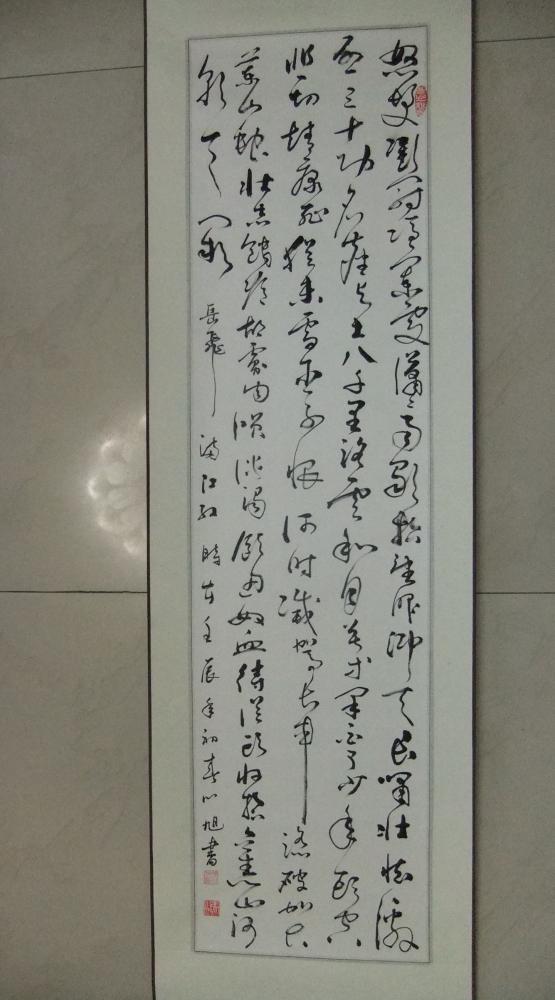 怒髮衝冠憑闌處瀟瀟雨歇抬望眼仰天長嘯壯懷激
烈三十功名塵與土八千里路雲和月莫等閒白了少年頭空
悲切靖康恥猶未雪臣子恨何时滅駕長車踏破賀
蘭山缺壯志饑餐胡虜肉笑談渴飲匈奴血待從頭收拾舊山河
朝天闕 岳飛 滿江紅 時在壬辰年初春心旭書